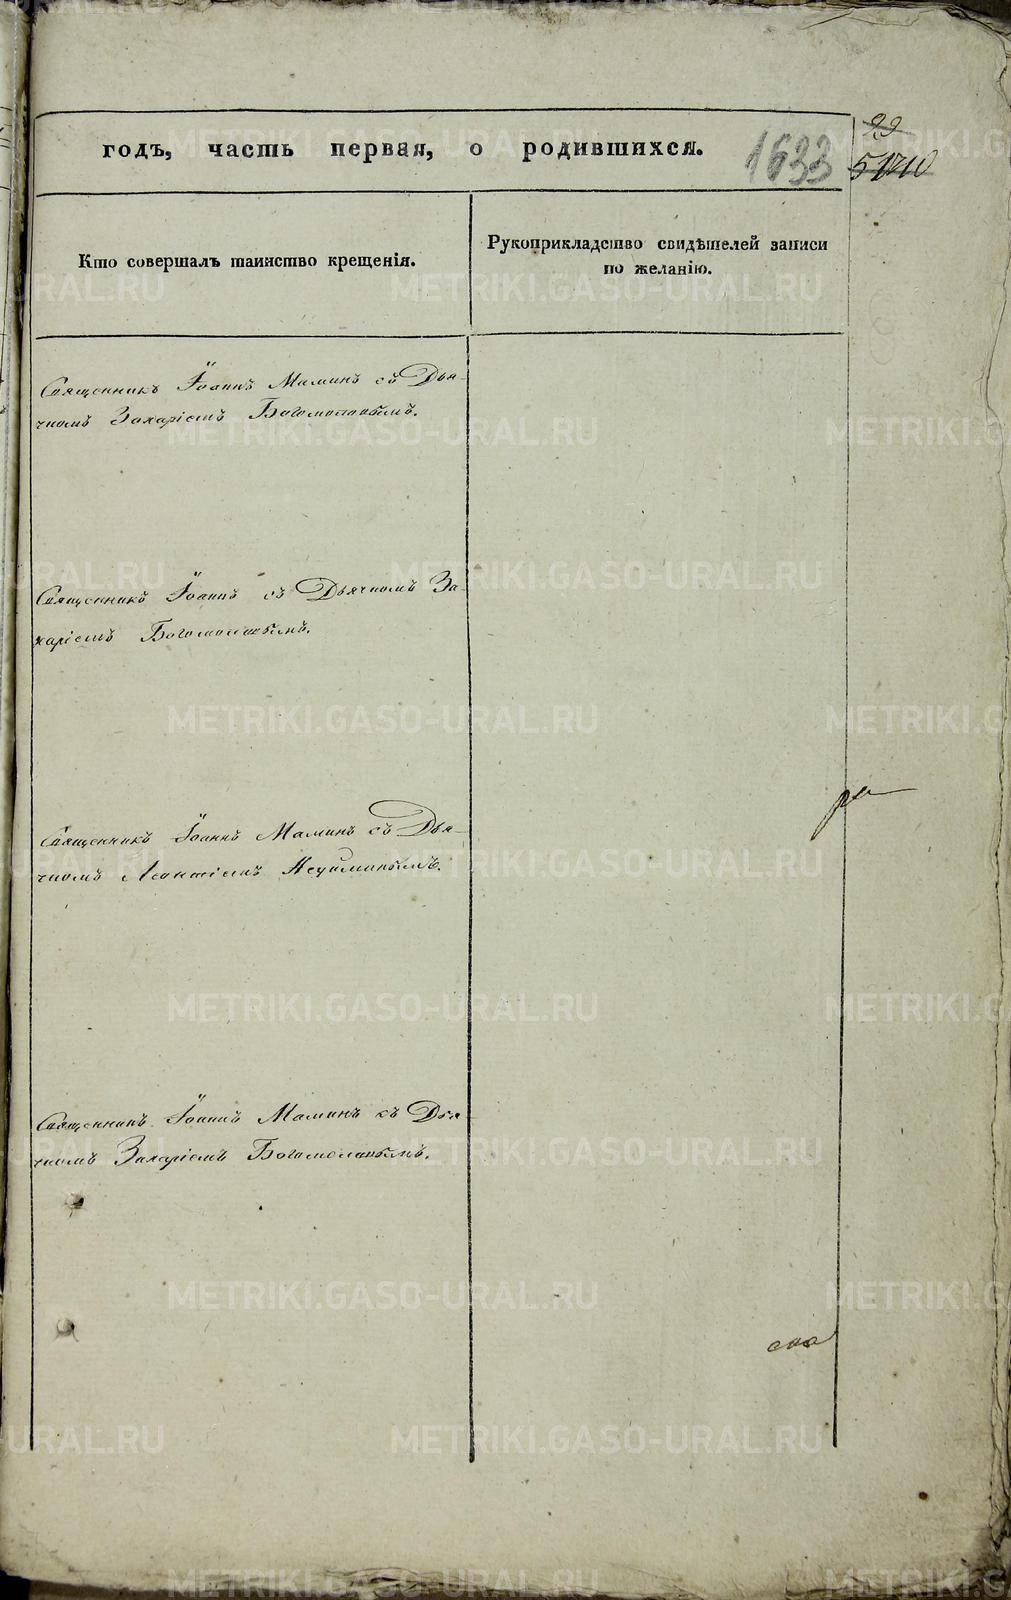 годъ, часть первая, о родившихся.
1633
29
51710
Кто совершалъ таинство крещенія.
Рукоприкладство свидѣтелей записи
по желанію.
Священникъ Іоаннъ Маминъ съ Дья-
чкомъ Захаріемъ Богомоловымъ.
Священникъ Іоаннъ съ Дьячкомъ За-
харіемъ Богомоловымъ.
ра
Священникъ Іоаннъ Маминъ съ Дья-
чкомъ Леонтіемъ Неуйминымъ.
Священникъ Іоаннъ Маминъ съ Дья-
чкомъ Захаріемъ Богомоловымъ.
ска
METRIKI.GASO-URAL.RU